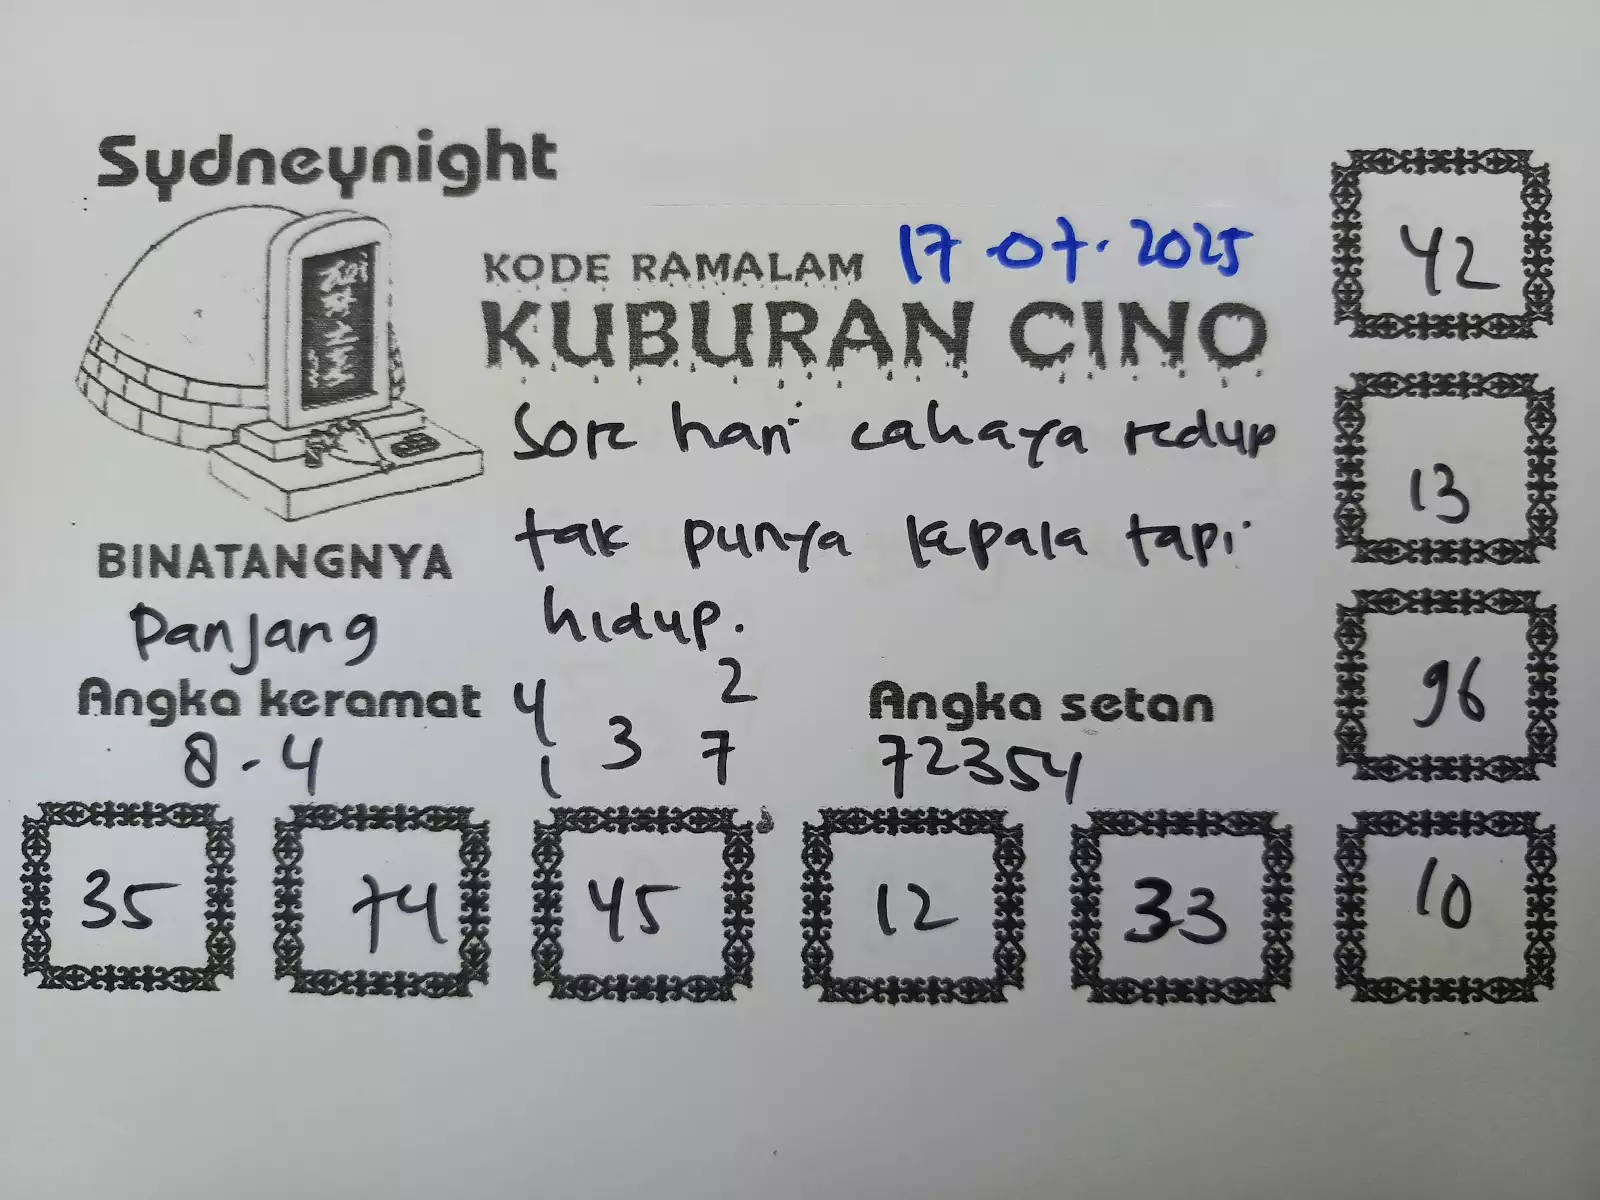 Sydneynight
KODE RAMALAM 17.07.2025
KUBURAN CINO
Sore hari cahaya redup
tak punya kepala tapi
hidup.
BINATANGNYA
Panjang
Angka keramat
8-4
4 2
3
1 7
Angka setan
72354
42
13
96
35 74 45 12 33 10